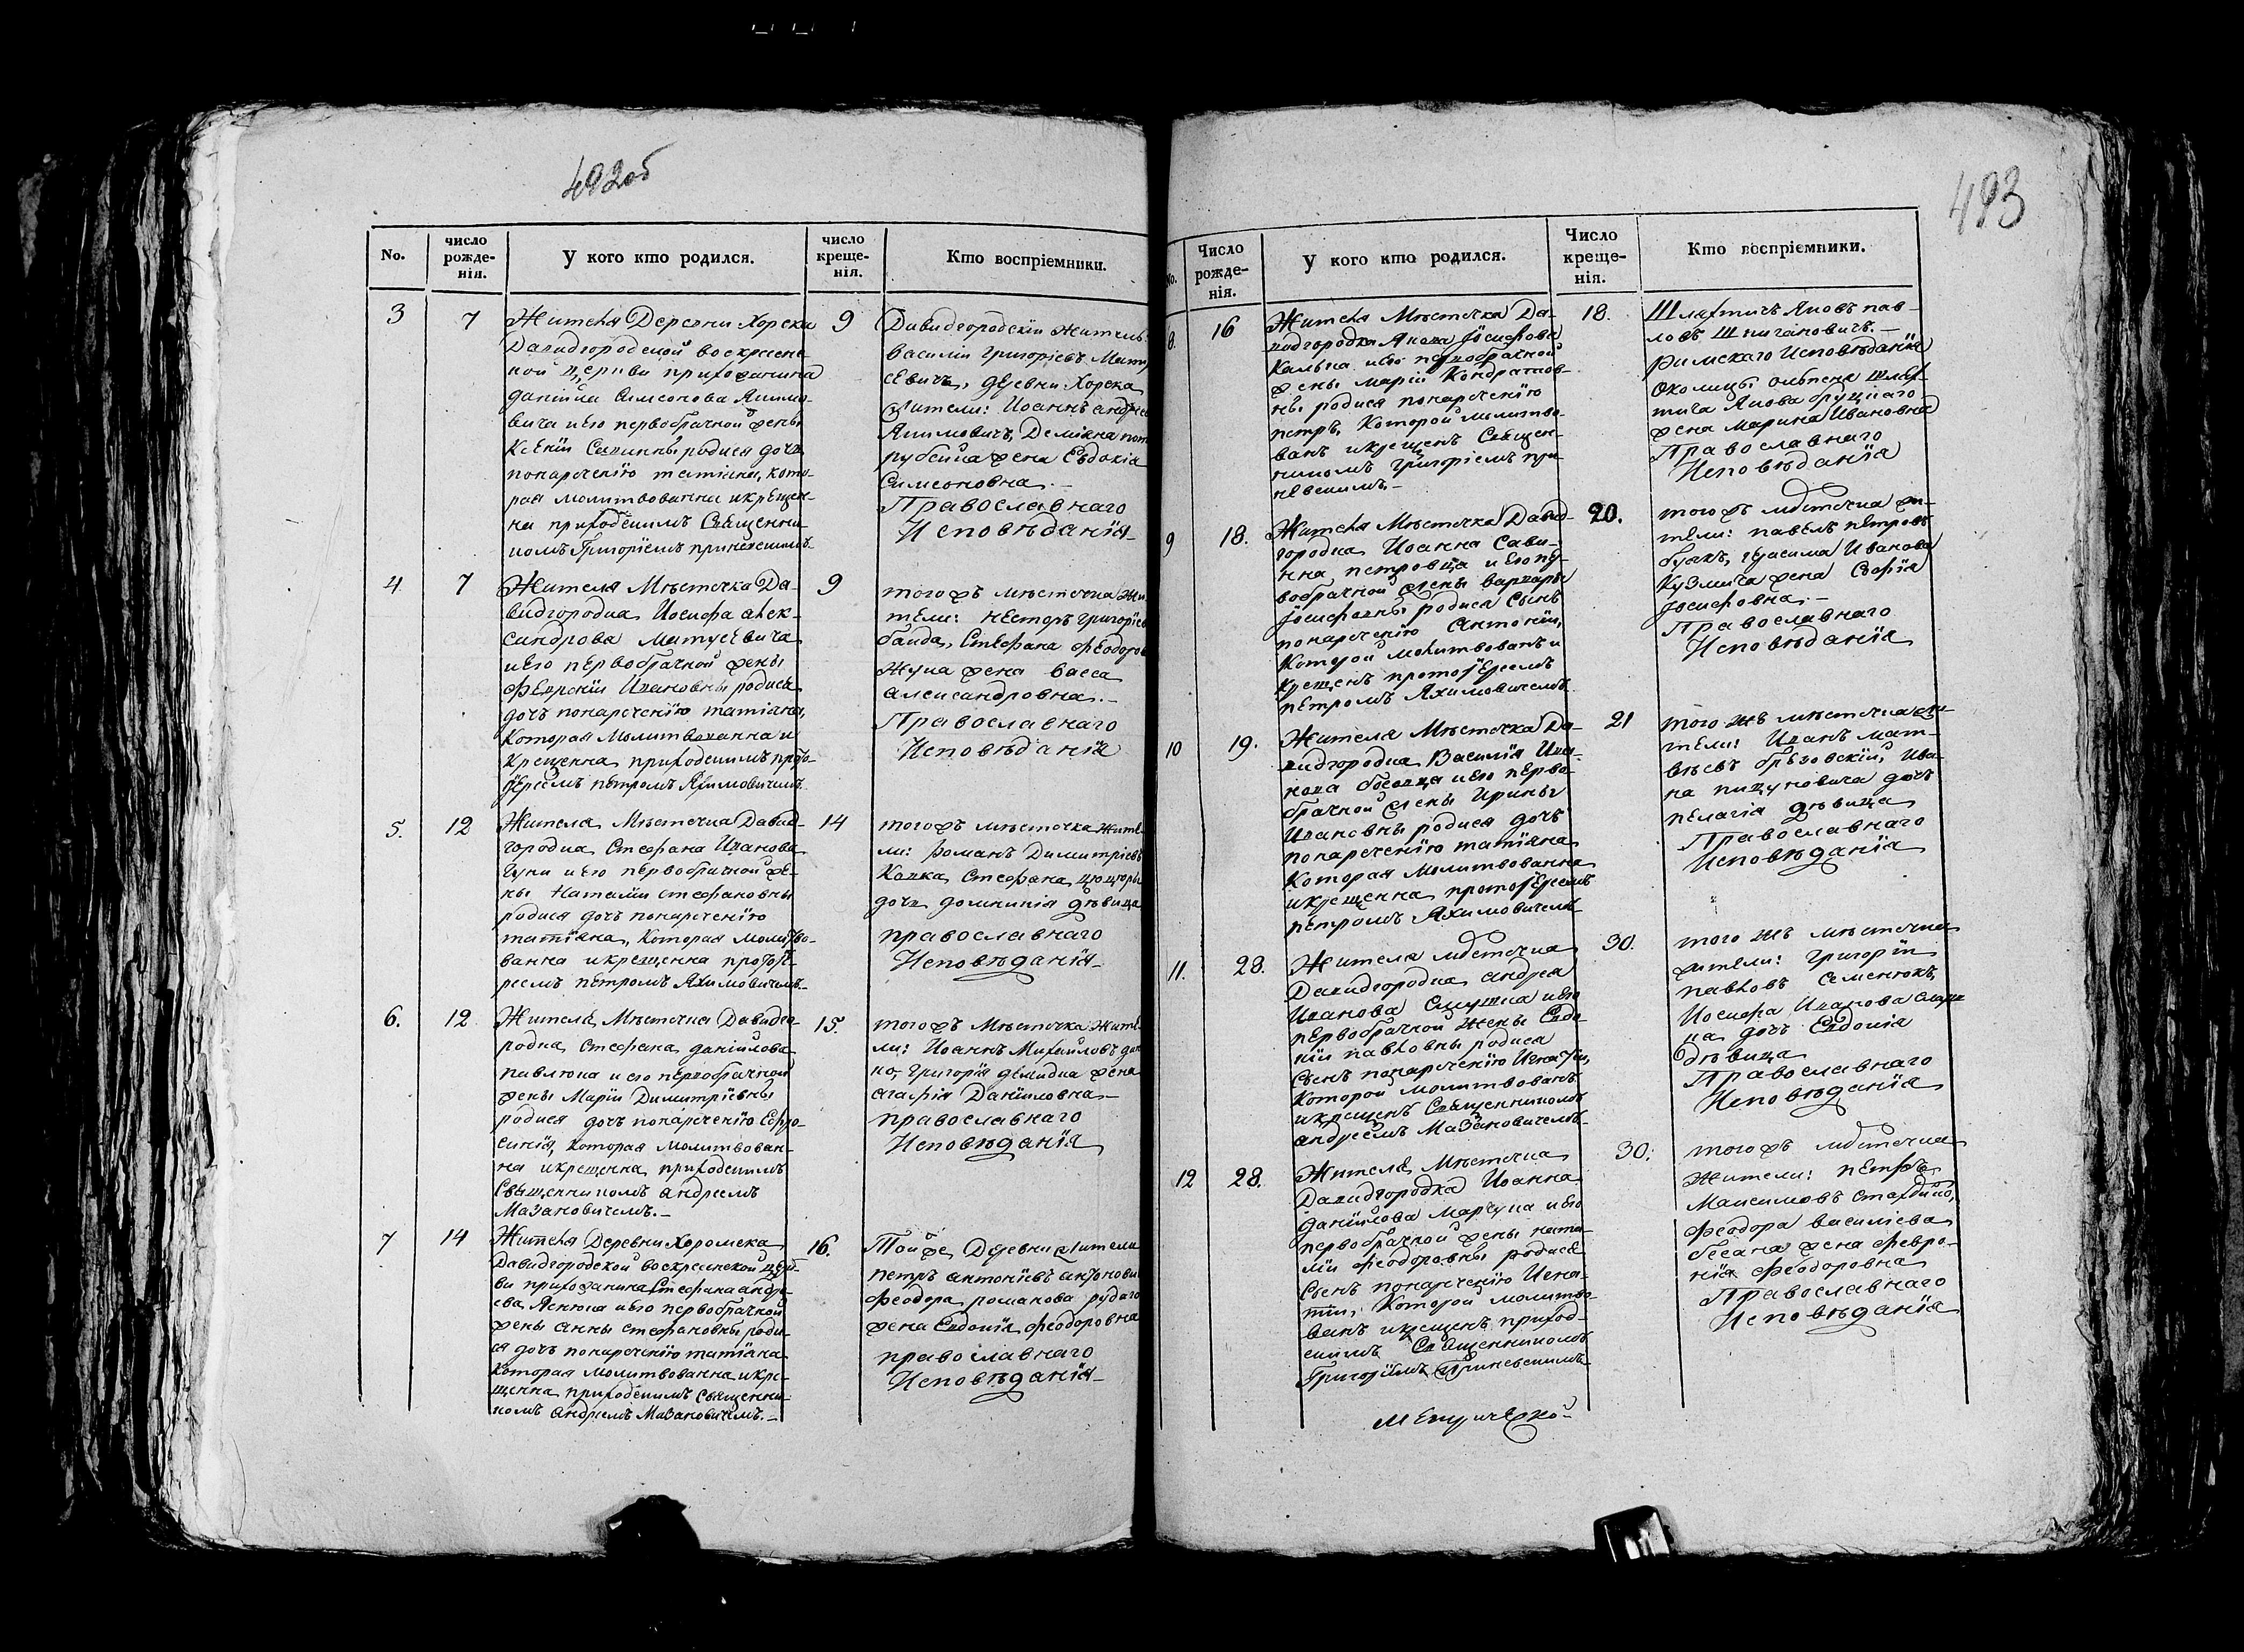 492об
No.
число рожде- нія.
У кого кто родился.
число креще- нія.
Кто воспріемники.
3
7
Жителя Деревни Хорска
Давидгородской воскресен-
ной церкви прихожанина
даніила Симеонова Якимо-
вича и его первобрачной жены
Ксеніи Саввины родися дочь
понареченію татіана, кото-
рая молитвованна и крещен-
на приходскимъ Священни-
комъ Григоріемъ
9
Давидгородскій житель
василій Григоріевъ
севичъ, деревни Хорска
жители: Иоаннъ
Якимовичъ, Деміяна
жена Евдокія
Симеоновна.-
Православнаго
Исповѣданія
4
7
Жителя Мѣстечка Да-
видгородка Иосифа алек-
сандрова Матусевича
и его первобрачной жены
Февроніи Ивановны родися
дочь понареченію татіана,
Которая Молитвованна и
Крещенна приходскимъ прото-
іереемъ петромъ Якимовичемъ
9
тогожъ мѣстечка
тели: несторъ григоріев
байда, Стефана феодоров
Жука жена васса
александровна.-
Православнаго
Исповѣданія
5.
12
Жителя Мѣстечка Давид-
городка Стефана Иванова
и его первобрачной же-
ны Наталіи стефановны
родися дочь понареченію
татіана, Которая молитво-
ванна и крещенна протоіе-
реемъ петромъ Якимовичемъ.
14
тогожъ мѣстечка жите
ли: романъ Димитріевъ
Стефана
дочь домникія дѣвица
православнаго
Исповѣданія
6.
12
Жителя Мѣстечка Давидго-
родка Стефана даніилова
павлюка и его первобрачной
жены Маріи Димитріевны
родися дочь понареченію Ефро-
синія, Которая Молитвован-
на и крещенна приходскимъ
Священникомъ андреемъ
Мазановичемъ.-
15.
тогожъ Мѣстечка жите
ли: Иоаннъ Михайловъ
григорія демидка жена
агафія Даніиловна
православнаго
Исповѣданія
7
14
Жителя Деревни Хоромска
Давидгородской воскресенской церк-
ви прихожанина Стефана андре-
ева Ясковца и его первобрачной
жены анны стефановны роди-
ся дочь понареченію татіана
Которая Молитвованна и кре-
щенна приходскимъ Священни-
комъ андреемъ Мазановичемъ.-
16.
Тойже Деревни жители
петръ антоніевъ
феодора романова рудаго
жена Евдокія феодоровна
православнаго
Исповѣданія
493
No.
Число рожде- нія.
У кого кто родился.
Число креще- нія.
Кто воспріемники.
8.
16
Жителя Мѣстечка Да-
видгородка Якова Іосифова
и его первобрачной
жены маріи Кондратов-
ны родися понареченію
петръ, Которой молитво-
ванъ и крещенъ Священ-
никомъ григоріемъ
18.
Шляхтичъ Яковъ пав-
ловъ
римскаго Исповѣданія
Околицы ольпеня шлях-
тича Якова
жена Марина Ивановна
Православнаго
Исповѣданія
9
18.
Жителя Мѣстечка Давид-
городка Иоанна Сави-
на петровца и его пер-
вобрачной жены варвары
Іосифовны родися Сынъ
понареченію Антоній,
Которой Молитвованъ и
Крещенъ протоіереемъ
петромъ Якимовичемъ
20.
тогожъ мѣстечка жи-
тели: павелъ петровъ
гуракъ, герасима Иванова
Кузмича жена Софія
Іосифовна.-
Православнаго
Исповѣданія
10
19.
Жителя Мѣстечка Да-
видгородка Василія Ива-
нова и его перво-
брачной жены Ирины
Ивановны родися дочь
понареченію татіана
Которая Молитвованна
и крещенна протоіереемъ
петромъ Якимовичемъ
21
того жъ мѣстечка жи-
тели: Иванъ мат-
вѣевъ брезовскій, Ива-
на дочь
пелагія дѣвица
Православнаго
Исповѣданія
11.
28.
Жителя мѣстечка
Давидгородка андрея
Иванова и его
первобрачной жены Евдо-
кіи павловны родися
Сынъ понареченію Игнатій,
Которой Молитвованъ
и крещенъ Священникомъ
андреемъ Мазановичемъ.
30.
того жъ мѣстечка
жители: григорій
павловъ Семенюкъ,
Иосифа Иванова
дочь Евдокія
дѣвица
Православнаго
Исповѣданія
12
28.
Жителя Мѣстечка
Давидгородка Иоанна
даніилова и его
первобрачной жены ната-
ліи феодоровны родися
Сынъ понареченію Игна-
тій, Которой молитво-
ванъ и крещенъ приход-
скимъ Священникомъ
Григоріемъ
30.
тогожъ мѣстечка
Жители: петръ
Максимовъ
феодора василіева
жена февро-
нія феодоровна
Православнаго
Исповѣданія